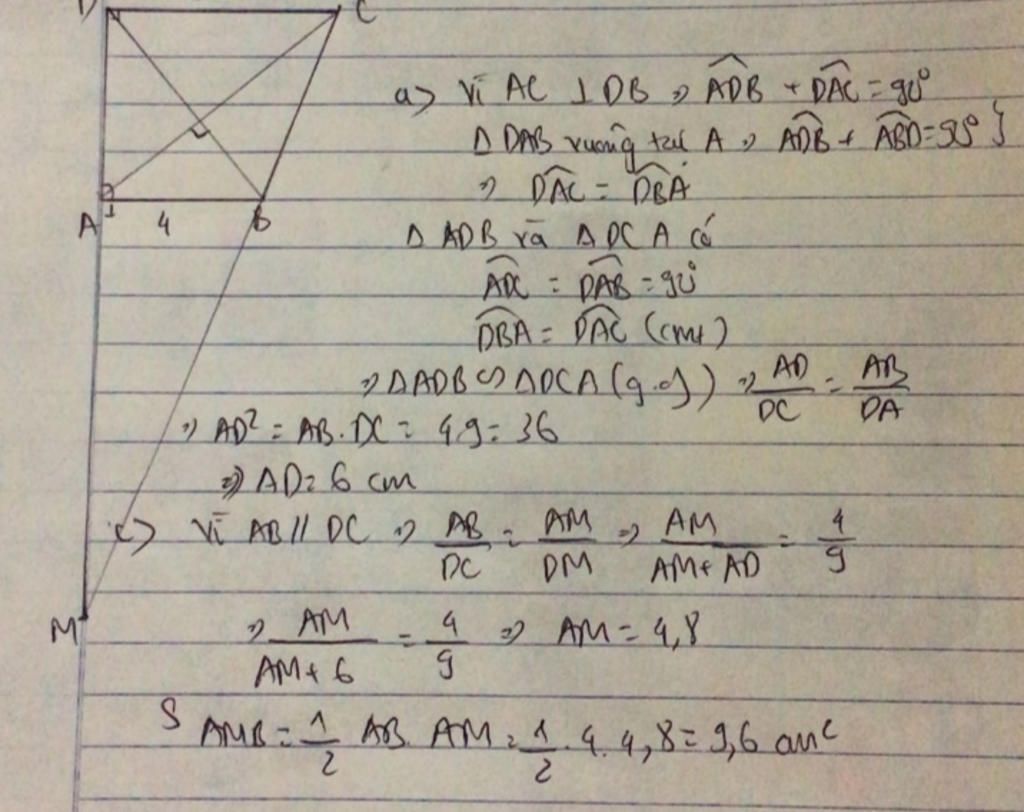 D C
a) Vì AC ⊥ DB ⇒ ADB + DAC = 90°
Δ DAB vuông tại A ⇒ ADB + ABD = 90° }
⇒ DAC = DBA
A 4 B
Δ ADB và Δ DCA có
ADC = DAB = 90°
DBA = DAC (cmt)
⇒ ΔADB ∽ ΔDCA (g.g) ⇒ AD/DC = AB/DA
⇒ AD² = AB.DC = 4.9 = 36
⇒ AD = 6 cm
c) Vì AB // DC ⇒ AB/DC = AM/DM ⇒ AM/AM+AD = 4/9
M
⇒ AM/AM+6 = 4/9 ⇒ AM = 4,8
S AMB = 1/2 AB. AM = 1/2 . 4. 4,8 = 9,6 cm²